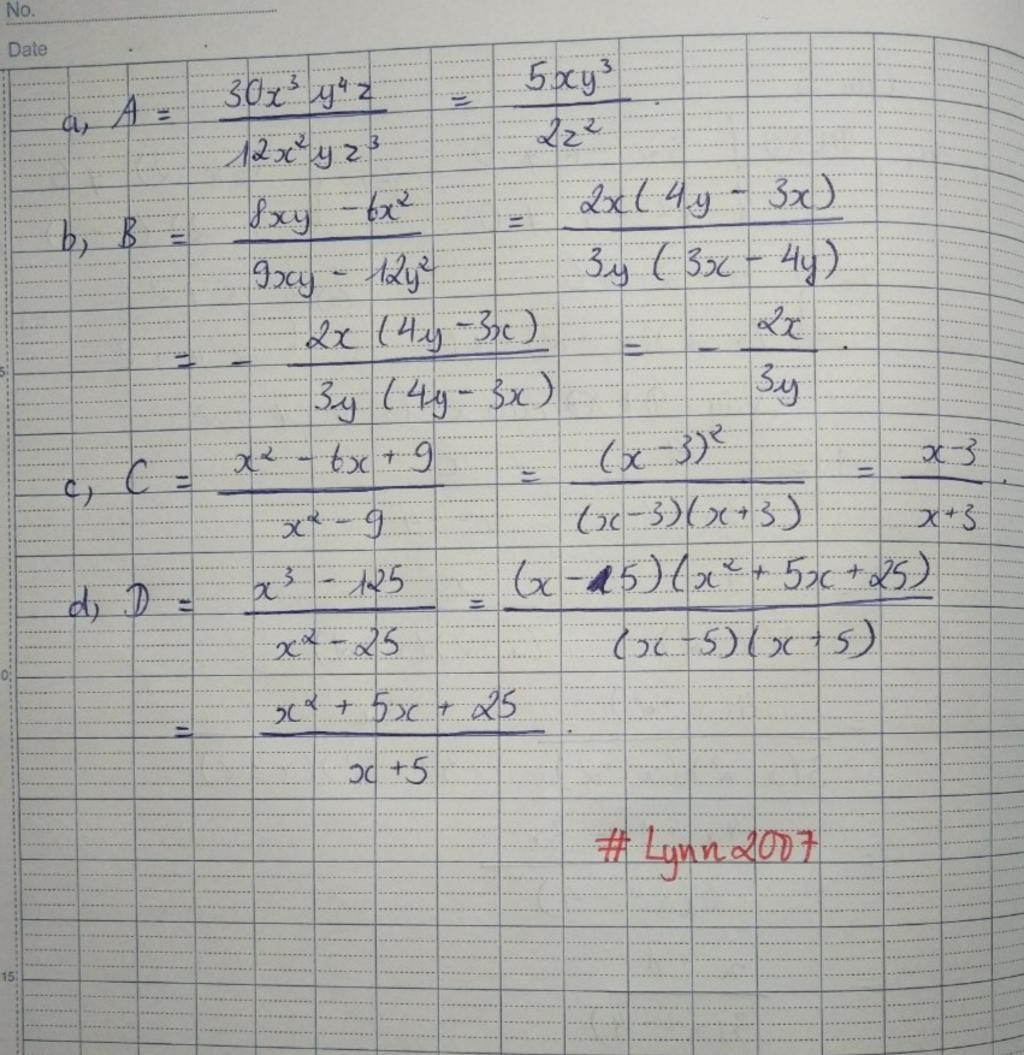 No.
Date
a, A = 30x³y⁴z / 12x²yz³ = 5xy³ / 2z² .
b, B = 8xy - 6x² / 9xy - 12y² = 2x(4y - 3x) / 3y(3x - 4y)
5
= - 2x(4y - 3x) / 3y(4y - 3x) = - 2x / 3y .
c, C = x² - 6x + 9 / x² - 9 = (x - 3)² / (x - 3)(x + 3) = x - 3 / x + 3 .
d, D = x³ - 125 / x² - 25 = (x - 5)(x² + 5x + 25) / (x - 5)(x + 5)
0
= x² + 5x + 25 / x + 5 .
# Lynn2007
15